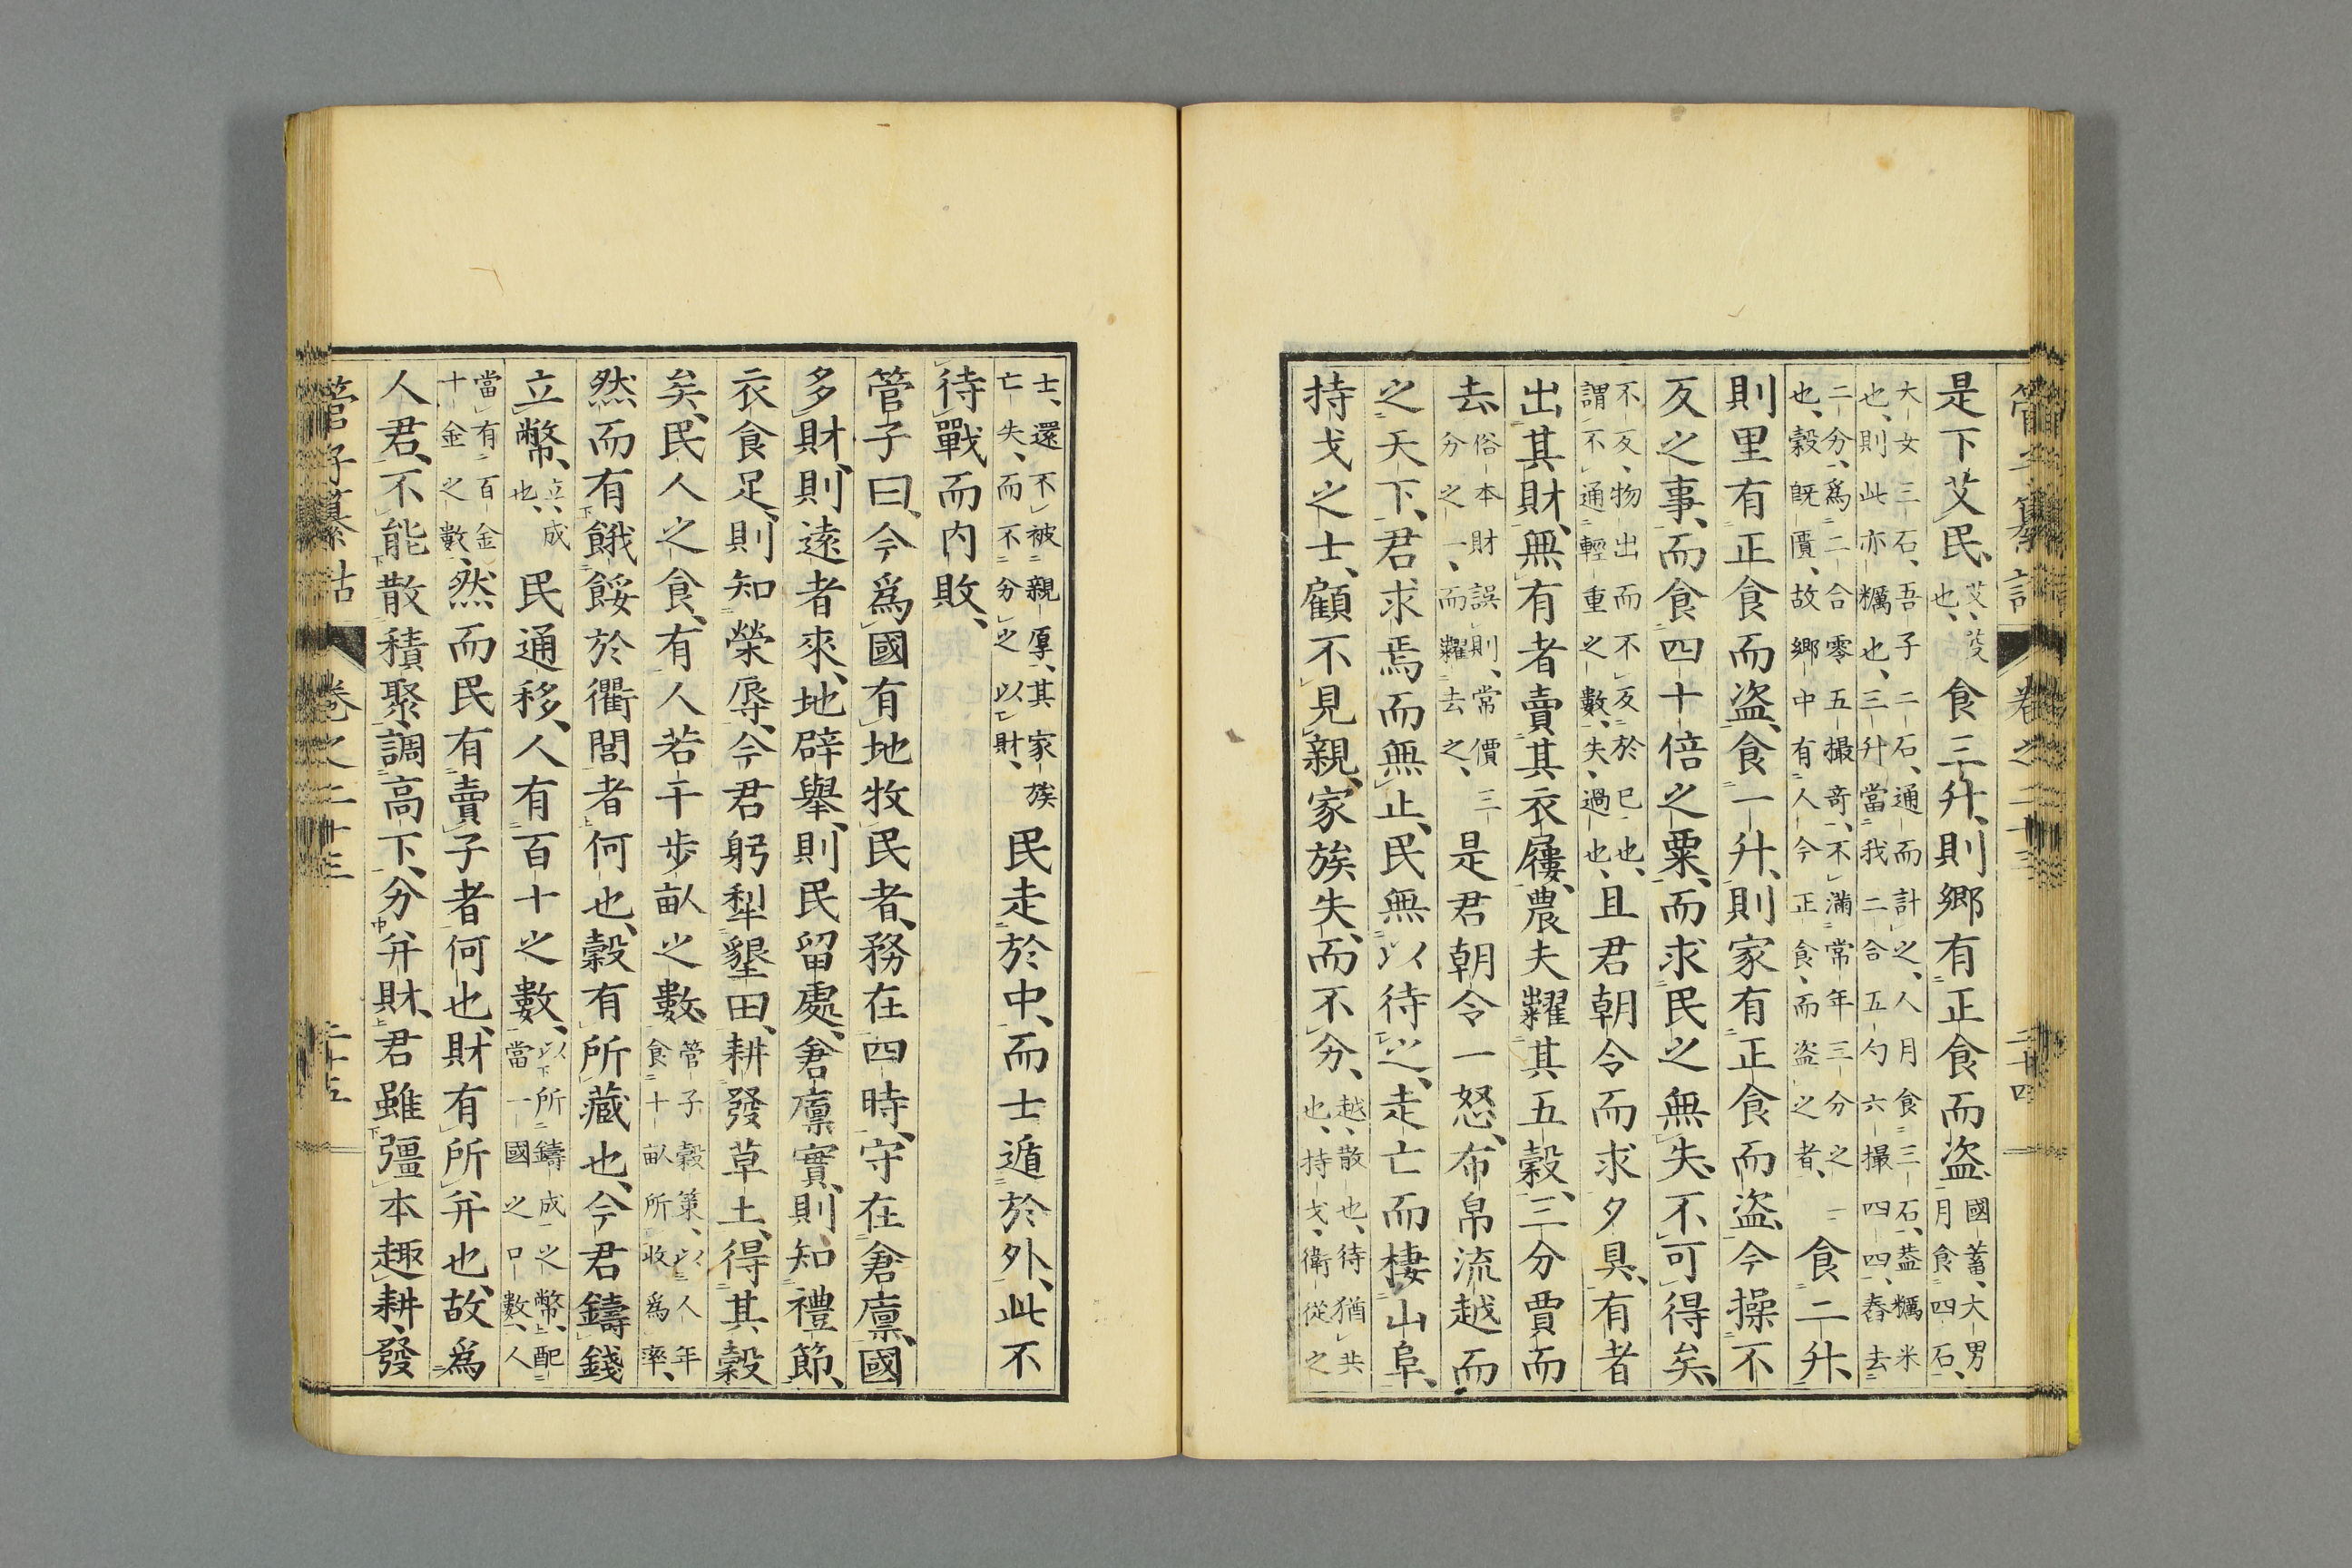 管子纂詁 卷之二十三 二十四
是下艾民、艾、芟也、食三升、則鄉有正食而盜、國蓄、大男月食四石、
大女三石、吾子二石、通而計之、人月食三石、葢糲米也、則此亦糲也、三升當我二合五勺六撮四四、舂去
二分、爲二合零五撮竒、不滿常年三分之也、穀旣匱、故鄉中有人今正食、而盜之者、食二升、
則里有正食而盜、食一升、則家有正食而盜、今操不
反之事、而食四十倍之粟、而求民之無失、不可得矣、
不反、物出而不反於已也、謂不通輕重之數、失、過也、且君朝令而求夕具、有者
出其財、無有者賣其衣屨、農夫糶其五穀、三分賈而
去、俗本財誤則、常價三分之一、而糶去之、是君朝令一怒、布帛流越而
之天下、君求焉而無止、民無以待之、走亡而棲山阜、
持戈之士、顧不見親、家族失、而不分、越、散也、待猶共也、持戈、衛從之
士、還不被親厚、其家族亡失、而不分之以財、民走於中、而士遁於外、此不
待戰而內敗、
管子曰、今爲國有地牧民者、務在四時、守在倉廩、國
多財、則遠者來、地辟舉、則民留處、倉廩實、則知禮節、
衣食足、則知榮辱、今君躬犁墾田、耕發草土、得其穀
矣、民人之食、有人若干步畝之數、管子穀策、以人年食十畝所收爲率、
然而有餓餒於衢閭者何也、穀有所藏也、今君鑄錢
立幣、立、成也、民通移、人有百十之數、以所鑄成之幣、配當一國之口數、人
當有百金十金之數、然而民有賣子者何也、財有所并也、故爲
人君、不能散積聚、調高下、分并財、君雖彊本趣耕、發
管子纂詁 卷之二十三 二十五